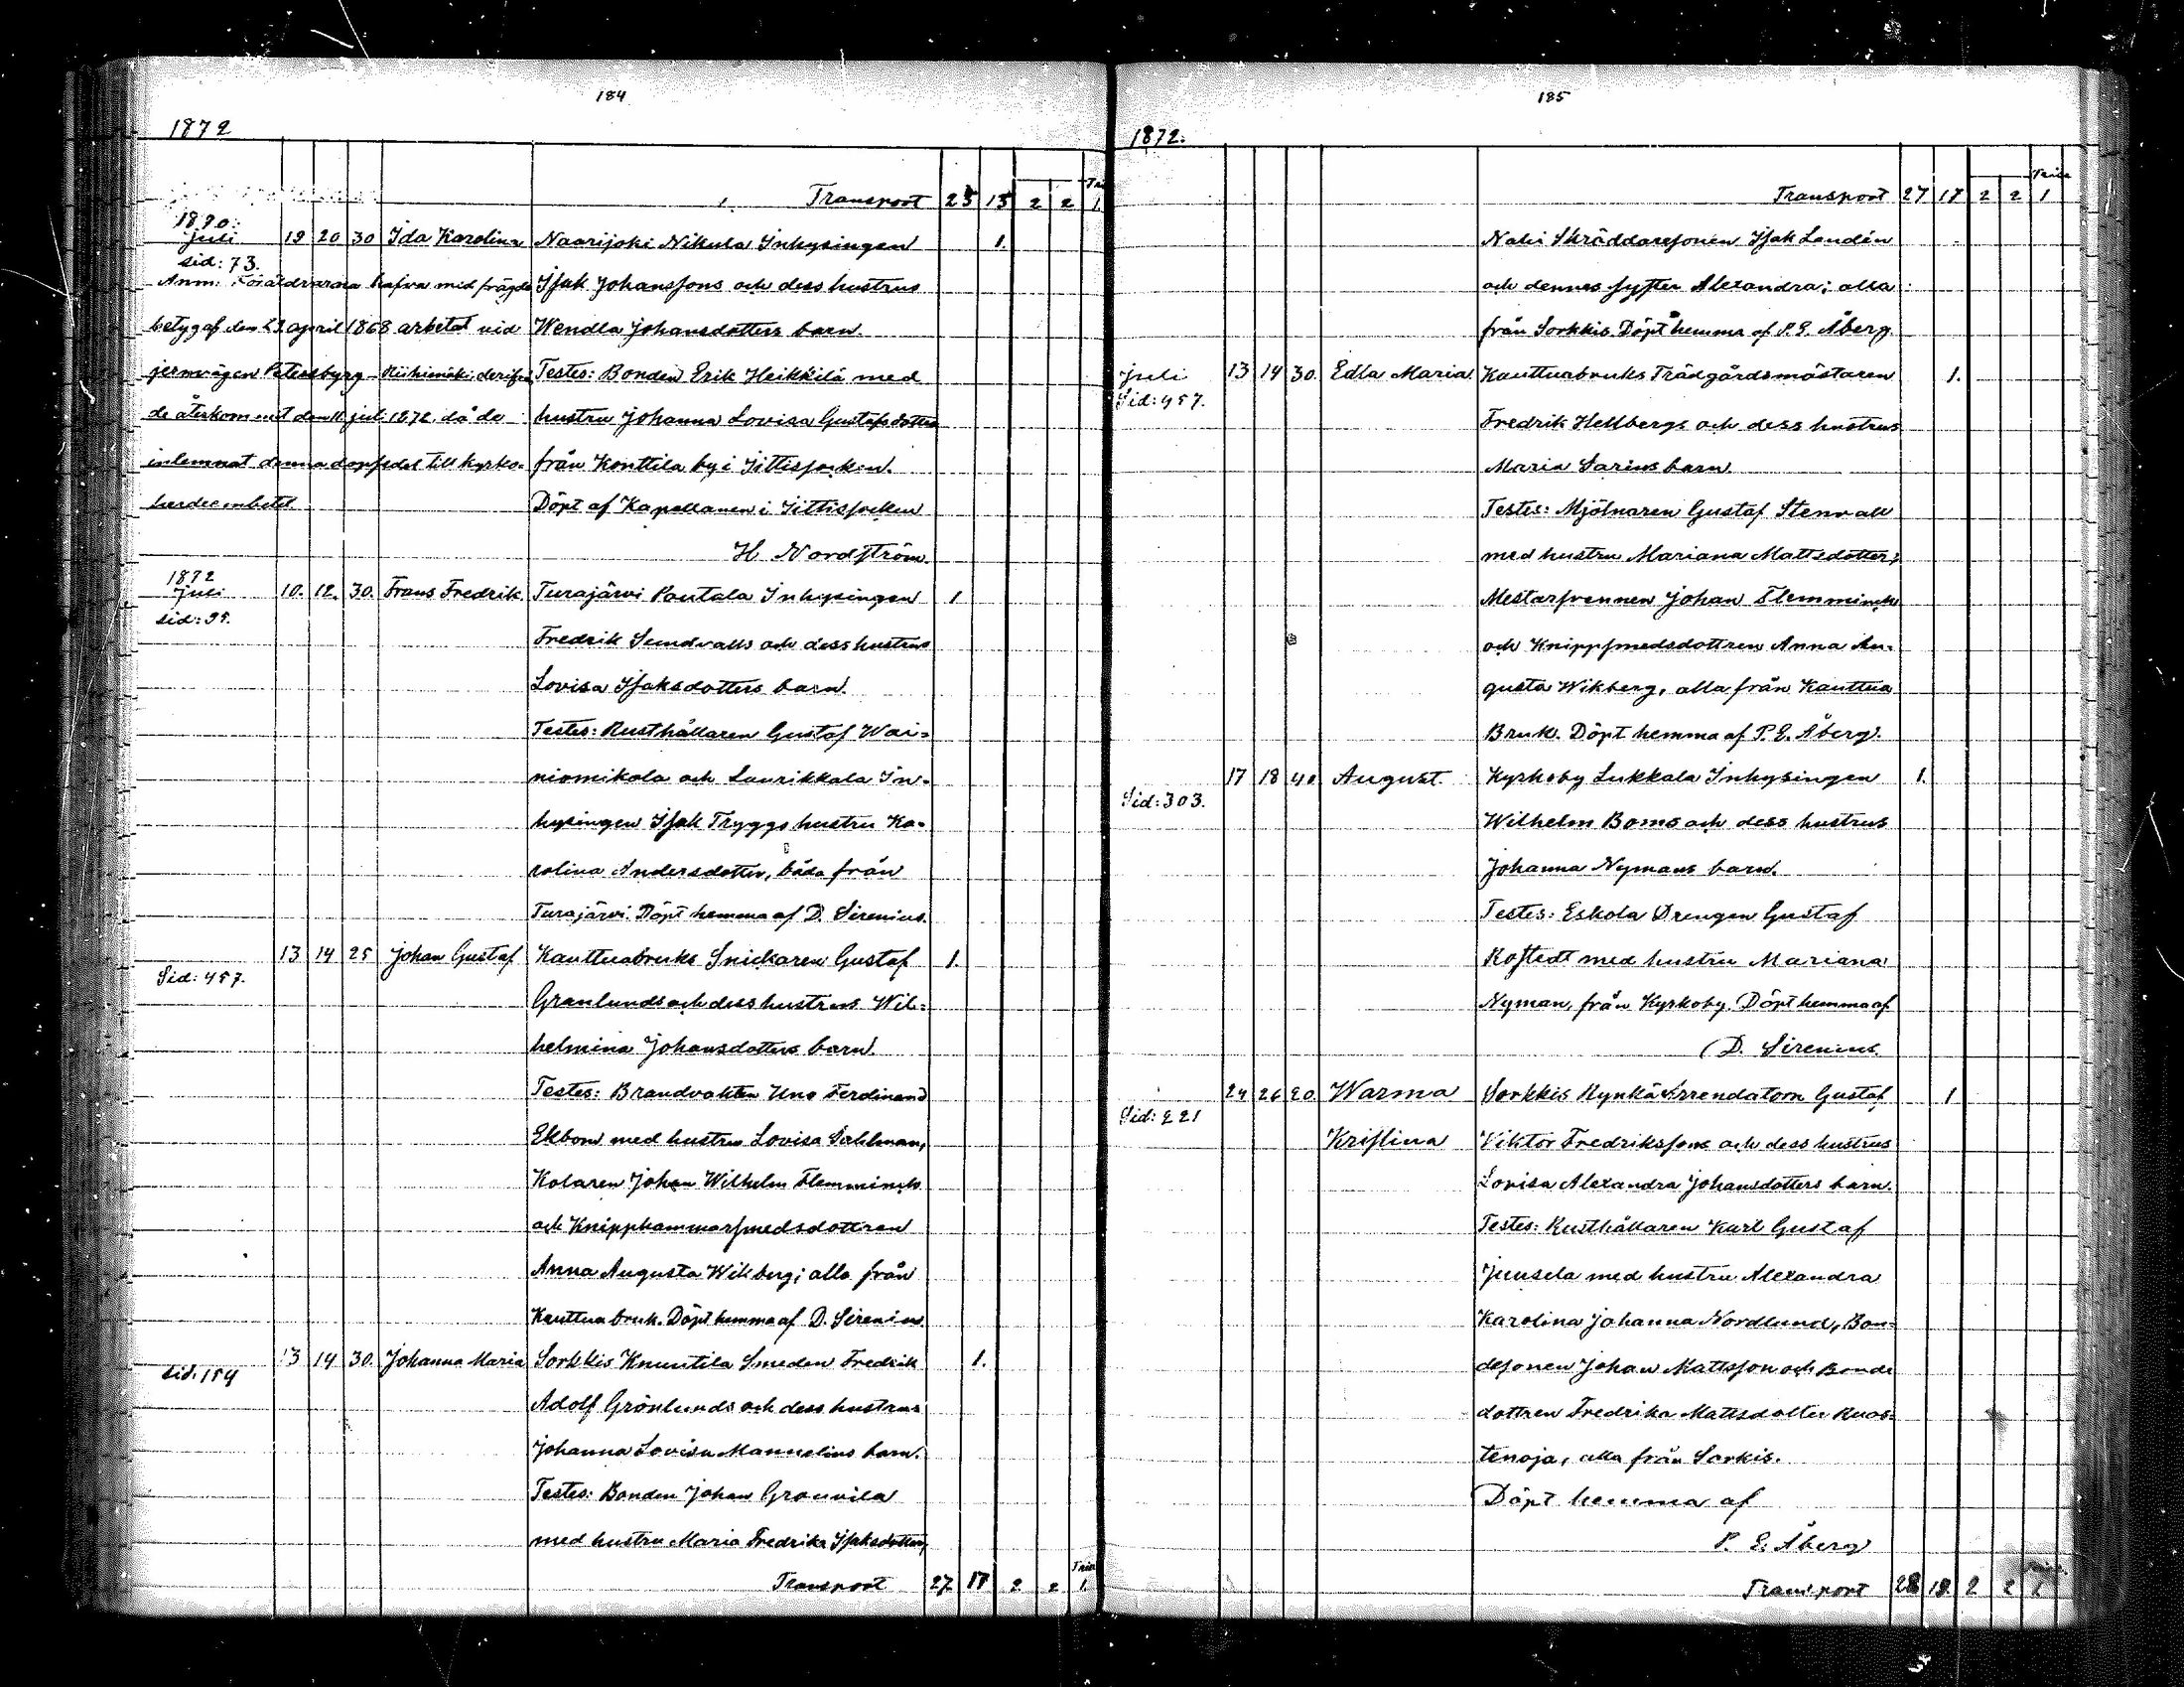 184
1872
Transport 25 15 2 2 1.
1870.
Juli 19 20 30 Ida Karolina Naarijoki Nikula Inhysingen 1.
Sid: 73.
Anm: Föräldrarna hafva med frägde Isak Johanssons och dess hustrus
betyg af den 29 april 1868 arbetat vid Wendla Johansdotters barn.
jernvägen Petersbyrg-Riihimäki derifrån Testes: Bonden Erik Heikkilä med
de återkommit den 11 juli 1872 då de hustru Johanna Lovisa Gustafsdotter
inlemnat denna dopsedel till kyrko- från Konttila by i Iittis socken.
herdeembetet Döpt af Kapellanen i Iittis socken
H Nordström.
1872
Juli 10. 12. 30. Frans Fredrik. Turajärvi Pautala Inhysingen 1
Sid: 95.
Fredrik Sundvalls och dess hustrus
Lovisa Isaksdotters barn.
Testes: Rusthållaren Gustaf Wai=
niomikola och Laurikkala In-
hysingen Isak Tryggs hustru Ka-
rolina Andersdotter, båda från
Turajärvi. Döpt hemma af D. Sirenius.
13 14 25 Johan Gustaf Kauttuabruks Snickaren Gustaf 1.
Sid: 457.
Granlunds och dess hustrus Wil=
helmina Johansdotters barn.
Testes: Brandvakten Uno Ferdinand
Ekbom med hustru Lovisa Dahlman,
Kolaren Johan Wilhelm Flemminck
och Knipphammarsmedsdottren
Anna Augusta Wikberg; alla från
Kauttua bruk. Döpt hemma af D. Sirenius.
Sid. 154 13 14 30. Johanna Maria Sorkkis Knuutila Smeden Fredrik 1.
Adolf Grönlunds och dess hustrus
Johanna Lovisa Mannelins barn.
Testes: Bonden Johan Grouvila
med hustru Maria Fredrika Isaksdotter,
Transport 27 17 2 2 1.
185
1872.
Transport 27 17 2 2 1
Nahi Skräddaresonen Isak Landén
och dennes syster Alexandra; alla
från Sorkkis. Döpt hemma af P. E. Åberg.
Juli 13 14 30. Edla Maria. Kauttuabruks Trädgårdsmästaren 1.
Sid: 457.
Fredrik Hellbergs och dess hustrus
Maria Sarins barn
Testes: Mjölnaren Gustaf Stenvall
med hustru Mariana Mattsdotter;
Mestarsvennen Johan Flemminck
och Knippsmedsdottren Anna Au-
gusta Wikberg, alla från Kauttua
Bruk. Döpt hemma af P. E. Åberg.
17 18 40 August Kyrkoby Lukkala Inhysingen 1.
Sid: 303.
Wilhelm Boms och dess hustrus
Johanna Nymans barn.
Testes: Eskola Drengen Gustaf
Kostedt med hustru Mariana
Nyman, från Kyrkoby. Döpt hemma af
D. Sirenius.
24 26 20. Warma Sorkkis Hynkä Arrendatorn Gustaf 1
Sid: 221
Kristina Viktor Fredrikssons och dess hustrus
Lovisa Alexandra Johansdotters barn.
Testes: Rusthållaren Karl Gustaf
Juusela med hustru Alexandra
Karolina Johanna Nordlund, Bon=
desonen Johan Mattsson och Bonde
dottren Fredrika Mattsdotter Ruos=
tenoja, alla från Sorkis.
Döpt hemma af
P. E. Åberg
Transport 28 18. 2 2 1